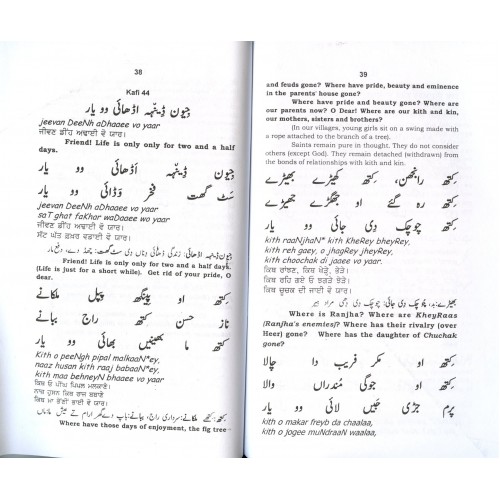 38
Kafi 44
جیون ڈینہہ اڈھائی وو یار
jeevan DeeNh aDhaaee vo yaar
ਜੀਵਣ ਡੀਂਹ ਅਢਾਈ ਵੋ ਯਾਰ।
Friend! Life is only only for two and a half
days.
جیون ڈینہہ اڈھائی وو یار
سٹ گھت فخر وڈائی وو یار
jeevan DeeNh aDhaaee vo yaar
saT ghat faKhar waDaaee vo yaar
ਜੀਵਣ ਡੀਂਹ ਅਢਾਈ ਵੋ ਯਾਰ।
ਸੱਟ ਘੱਤ ਫ਼ਖ਼ਰ ਵਡਾਈ ਵੋ ਯਾਰ।
Friend! Life is only only for two and a half days.
(Life is just for a short while). Get rid of your pride, O
dear.
کتھ او پینگھ پیپل ملکانے
ناز حسن کتھ راج ببانے
کتھ ما بھینیں بھائی وو یار
Kith o peeNgh pipal malkaaN*ey,
naaz husan kith raaj babaaN*ey,
kith maa behneyN bhaaee vo yaar
ਕਿਥ ਓ ਪੀਂਘ ਪਿਪਲ ਮਲਕਾਣੇ
ਨਾਜ਼ ਹੁਸਨ ਕਿਥ ਰਾਜ ਬਬਾਣੇ
ਕਿਥ ਮਾ ਭੈਣੀਂ ਭਾਈ ਵੋ ਯਾਰ।
Where have those days of enjoyment, the fig tree
39
and feuds gone? Where have pride, beauty and eminence
in the parents' house gone?
Where have pride and beauty gone? Where are
our parents now? O Dear! Where are our kith and kin,
our mothers, sisters and brothers?
(In our villages, young girls sit on a swing made with
a rope attached to the branch of a tree).
Saints remain pure in thought. They do not consider
others (except God). They remain detached (withdrawn) from
the bonds of relationships with kith and kin.
کتھ رانجھن، کتھ کھیڑے بھیڑے
کتھ رہ گئے او جھگڑے جھیڑے
کتھ چوچک دی جائی وو یار
kith raaNjhaN* kith KheRey bheyRey,
kith reh gaey, o jhagRey jheyRey,
kith choochak di jaaee vo yaar.
ਕਿਥ ਰਾਂਝਣ, ਕਿਥ ਖੇੜੇ, ਭੇੜੇ।
ਕਿਥ ਰਹਿ ਗਏ ਓ ਝਗੜੇ ਝੇੜੇ।
ਕਿਥ ਚੂਚਕ ਦੀ ਜਾਈ ਵੋ ਯਾਰ।
Where is Ranjha? Where are KheyRaas
(Ranjha's enemies)? Where has their rivalry (over
Heer) gone? Where has the daughter of Chuchak
gone?
کتھ او مکر فریب دا چالا
کتھ او جوگی مندراں والا
پرم جڑی جیں لائی وو یار
kith o makar freyb da chaalaa,
kith o jogee muNdraaN waalaa,